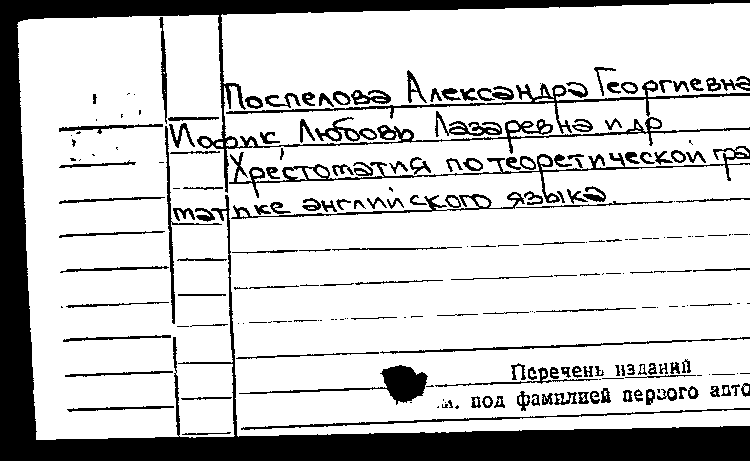 Поспелова, Александра Георгиевна
Иофик, Любовь Лазаревна и др.
Хрестоматия по теоретической гра
матике английского языка.
Перечень изданий
м. под фамилией первого авто